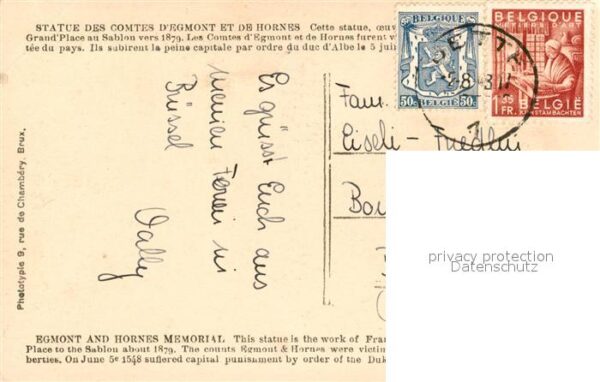 STATUE DES COMTES D'EGMONT ET DE HORNES Cette statue, œuv
Grand'Place au Sablon vers 1879. Les Comtes d'Egmont et de Hornes furent v
tée du pays. Ils subirent la peine capitale par ordre du duc d'Albe le 5 juin
50c BELGIQUE BELGIE 50c
BELGIQUE
METIERS D'ART
1.35 FR.
BELGIË
KUNSTAMBACHTEN
Es grüsst Euch aus
meinen Ferien in
Brüssel
Vally
Fam.
Eiseli-Friedlin
Phototypie 9, rue de Chambéry, Brux.
privacy protection
Datenschutz
EGMONT AND HORNES MEMORIAL This statue is the work of Fra
Place to the Sablon about 1879. The counts Egmont & Hornes were victim
berties. On June 5e 1548 suffered capital punishment by order of the Duk